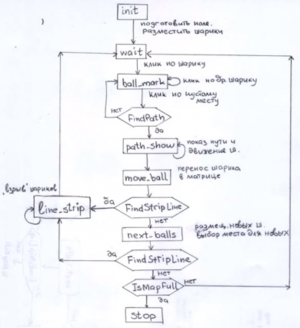 init
подготовить поле.
разместить шарики
wait
клик по шарику
ball_mark
клик по др. шарику
клик по пустому
месту
нет
FindPath
да
path_show
показ пути и
движение ш.
move_ball
перенос шарика
в матрице
"взрыв" шариков
line_strip
да
FindStripLine
нет
next_balls
размещ. новых ш.
выбор места для новых
да
FindStripLine
нет
IsMapFull
нет
да
Stop